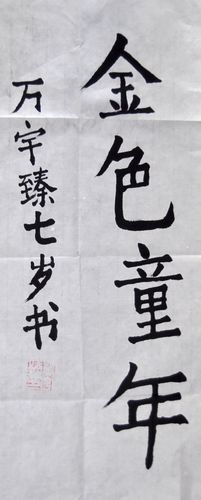 金色童年
万宇臻七岁书